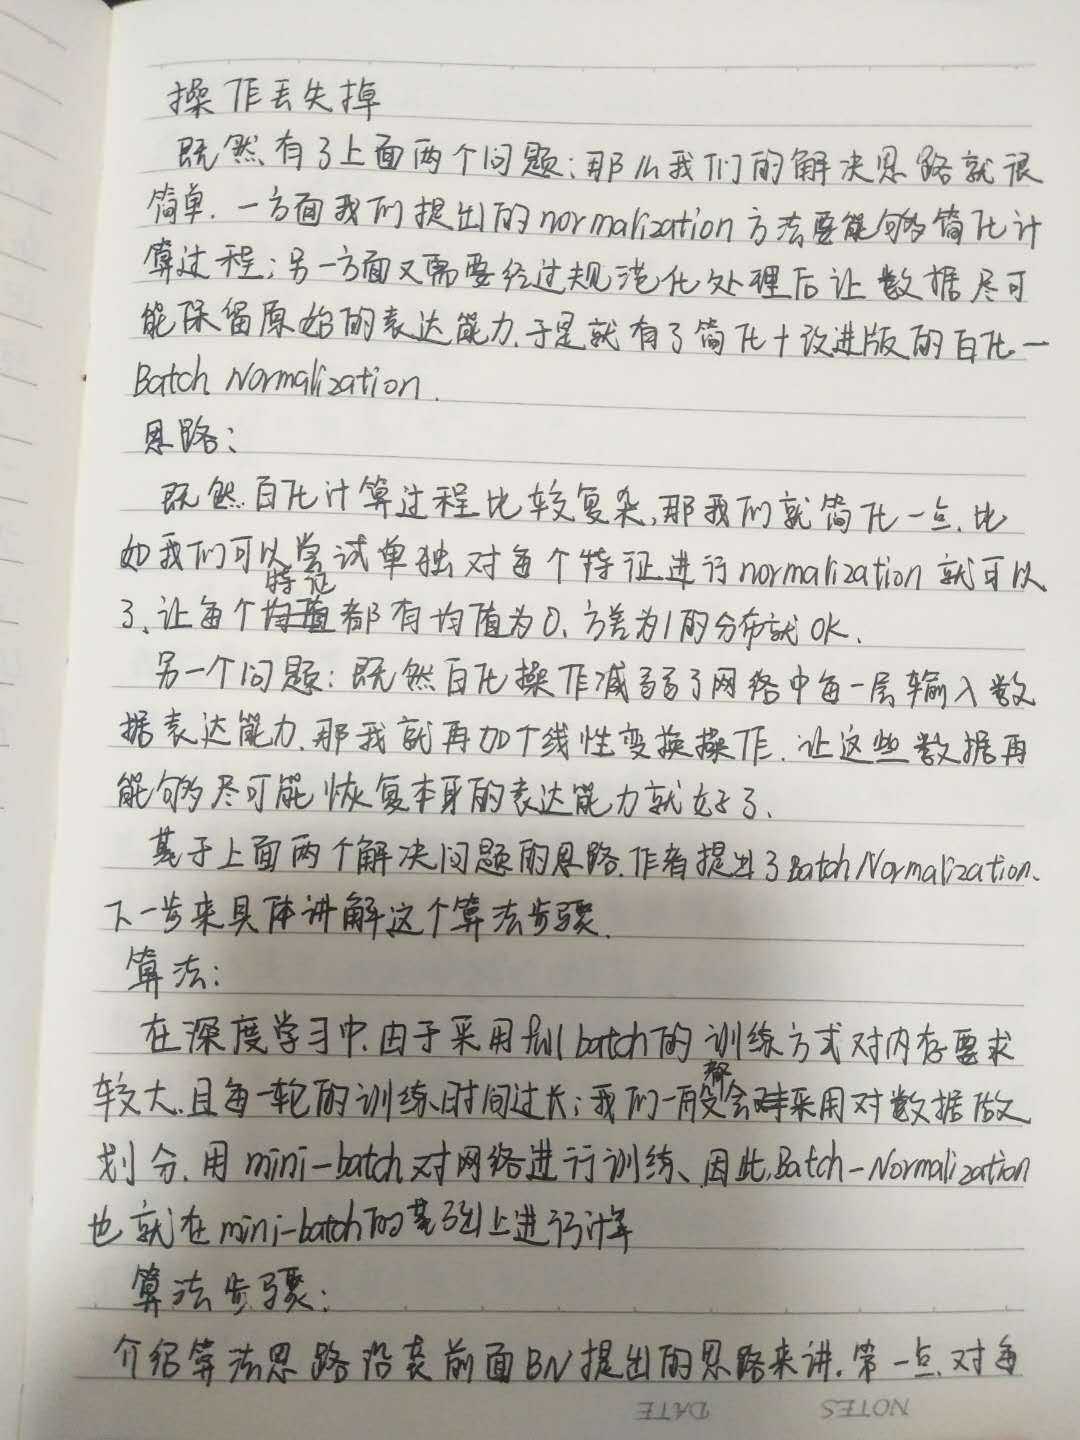 操作丢失掉
既然有了上面两个问题;那么我们的解决思路就很
简单.一方面我们提出的normalization方法要能够简化计
算过程;另一方面又需要经过规范化处理后让数据尽可
能保留原始的表达能力.于是就有了简化+改进版的白化—
Batch Normalization.
思路:
既然白化计算过程比较复杂,那我们就简化一点.比
如我们可以尝试单独对每个特征进行normalization就可以
了、让每个特征都有均值为0、方差为1的分布就OK.
另一个问题:既然白化操作减弱了网络中每一层输入数
据表达能力.那我就再加个线性变换操作.让这些数据再
能够尽可能恢复本身的表达能力就好了.
基于上面两个解决问题的思路.作者提出了Batch Normalization.
下一步来具体讲解这个算法步骤.
算法:
在深度学习中.由于采用full batch的训练方式对内存要求
较大.且每一轮的训练时间过长;我们一般都会采用对数据做
划分.用mini-batch对网络进行训练、因此,Batch-Normalization
也就在mini-batch的基础上进行计算
算法步骤:
介绍算法思路沿袭前面BN提出的思路来讲.第一点.对每
NOTES DATE